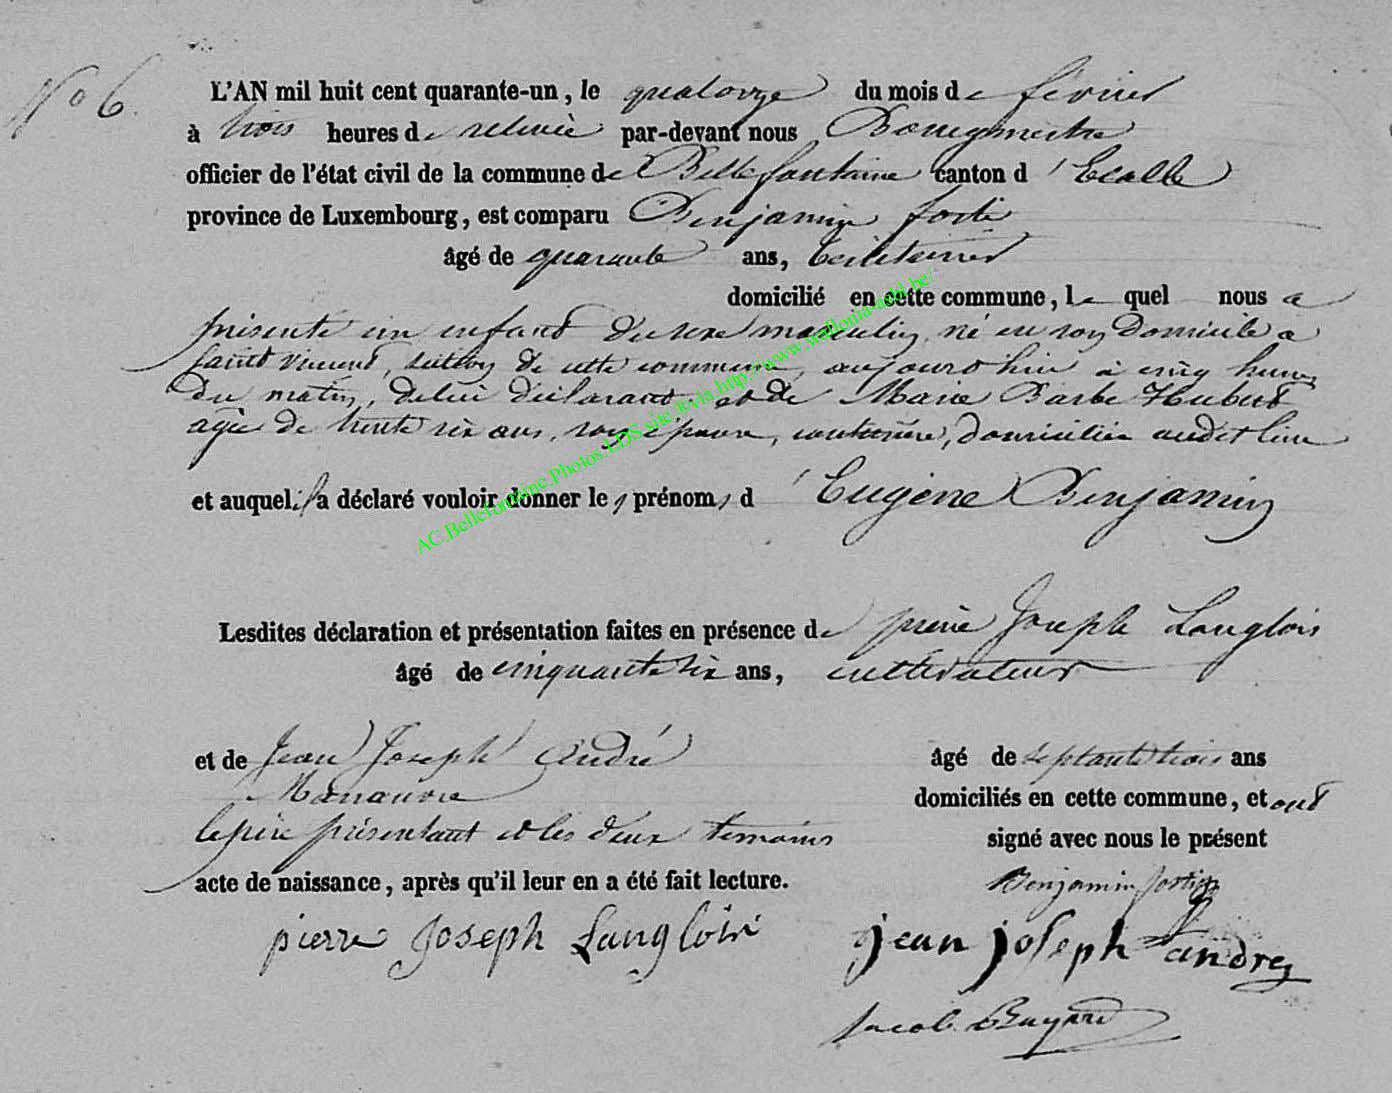 No 6.
L'AN mil huit cent quarante-un, le quatorze du mois de février
à trois heures de relevée par-devant nous Bourgmestre
officier de l'état civil de la commune de Bellefontaine canton d'Etalle
province de Luxembourg, est comparu Benjamin
âgé de quarante ans,
domicilié en cette commune, le quel nous a
présenté un enfant du sexe masculin, né en son domicile a
saint vincent, section de cette commune, aujourd'hui à cinq heures
du matin, de lui déclarant et de Marie Barbe Hubert
agée de trente six ans, son épouse, couturière, domiciliée audit lieu
et auquel il a déclaré vouloir donner les prénoms d'Eugène Benjamin
Lesdites déclaration et présentation faites en présence de pierre Joseph Langlois
âgé de cinquante six ans, cultivateur
et de Jean Joseph André âgé de septante trois ans
Manœuvre domiciliés en cette commune, et ont
le père présentant et les deux temoins signé avec nous le présent
acte de naissance, après qu'il leur en a été fait lecture.
Benjamin fortin
pierre Joseph Langlois jean joseph andrez
Jacob
AC.Bellefontaine.Photos.LDS.site.@via.http://www.wallonia-asbl.be/